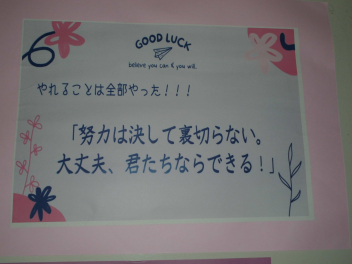 GOOD LUCK
believe you can & you will.
やれることは全部やった！！！
「努力は決して裏切らない。
大丈夫、君たちならできる！」